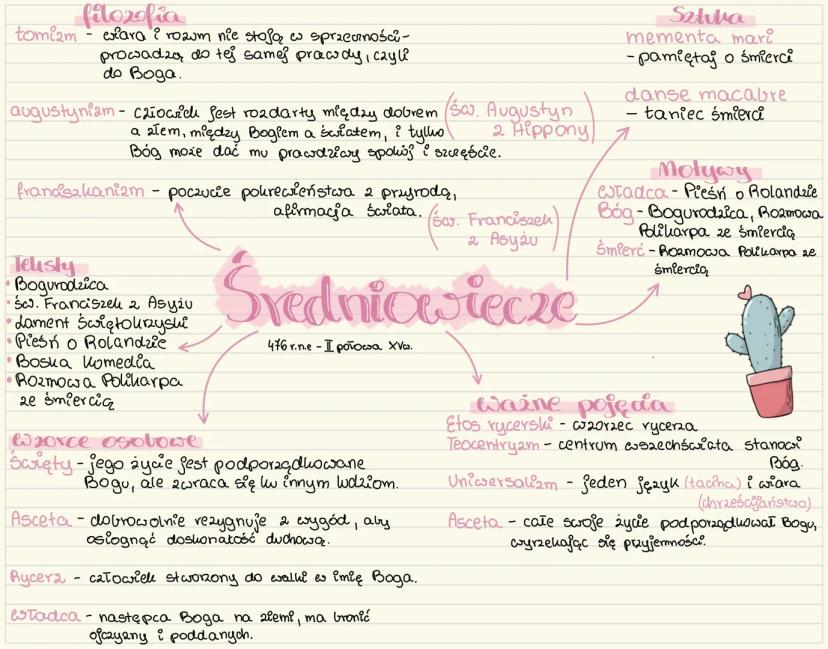 filozofia
tomizm - wiara i rozum nie stoją w sprzeczności -
prowadzą do tej samej prawdy, czyli
do Boga.
augustynizm - człowiek jest rozdarty między dobrem
a złem, między Bogiem a światem, i tylko
Bóg może dać mu prawdziwy spokój i szczęście.
(św. Augustyn
z Hippony)
franciszkanizm - poczucie pokrewieństwa z przyrodą,
afirmacja świata.
(św. Franciszek
z Asyżu)
Sztuka
mementa mari
- pamiętaj o śmierci
danse macabre
- taniec śmierci
Motywy
władca - Pieśń o Rolandzie
Bóg - Bogurodzica, Rozmowa
Polikarpa ze śmiercią
śmierć - Rozmowa Polikarpa ze
śmiercią
Teksty
• Bogurodzica
• św. Franciszek z Asyżu
• Lament świętokrzyski
• Pieśń o Rolandzie
• Boska Komedia
• Rozmowa Polikarpa
ze śmiercią
Średniowiecze
476 r.n.e - II połowa XVw.
Wzorce osobowe
Święty - jego życie jest podporządkowane
Bogu, ale zwraca się ku innym ludziom.
Asceta - dobrowolnie rezygnuje z wygód, aby
osiągnąć doskonałość duchową.
Rycerz - człowiek stworzony do walki w imię Boga.
Władca - następca Boga na ziemi, ma bronić
ojczyzny i poddanych.
Ważne pojęcia
Etos rycerski - wzorzec rycerza
Teocentryzm - centrum wszechświata stanowi
Bóg.
Uniwersalizm - jeden język (łacina) i wiara
(chrześcijaństwo)
Asceta - całe swoje życie podporządkował Bogu,
wyrzekając się przyjemności.